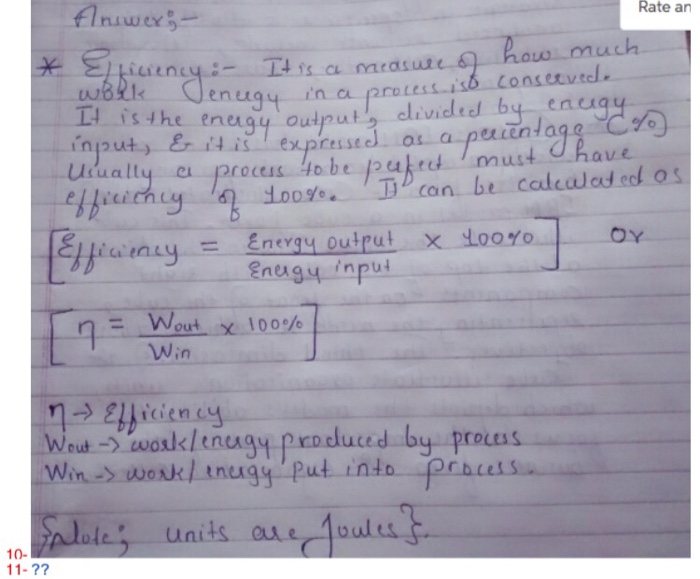 Rate an
Answer:-
* Efficiency:- It is a measure of how much
work energy in a process is conserved.
It is the energy output, divided by energy
input, & it is expressed as a percentage (%)
Usually a process to be perfect must have
efficiency of 100%. It can be calculated as
[Efficiency = Energy output / Energy input × 100%] or
[η = Wout / Win × 100%]
η → Efficiency
Wout → work/energy produced by process
Win → work/energy put into process.
{Note; units are Joules}.
10-
11- ??